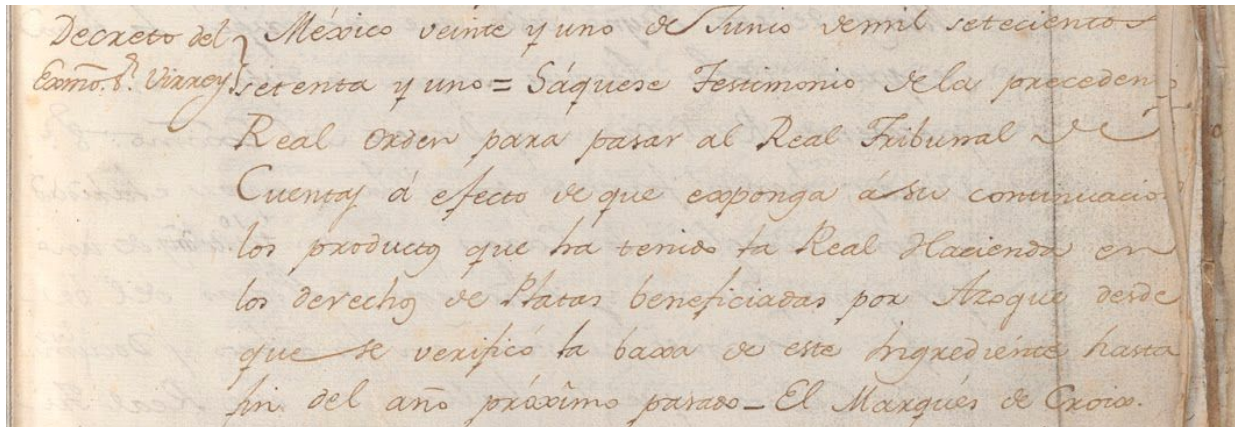 Decreto del
Exmõ. S.r Virrey
México veinte y uno de Junio demil setecientos
setenta y uno = Sáquese Testimonio dela preceden-
Real Orden para pasar al Real Tribunal de
Cuentas á efecto de que exponga á su continuacio
los productos que ha tenido la Real Hacienda en
los derechos de Platas beneficiadas por Azogue desde
que se verificó la baxa de este Ingrediénte hasta
fin del año próximo pasado_El Marqués de Croix.